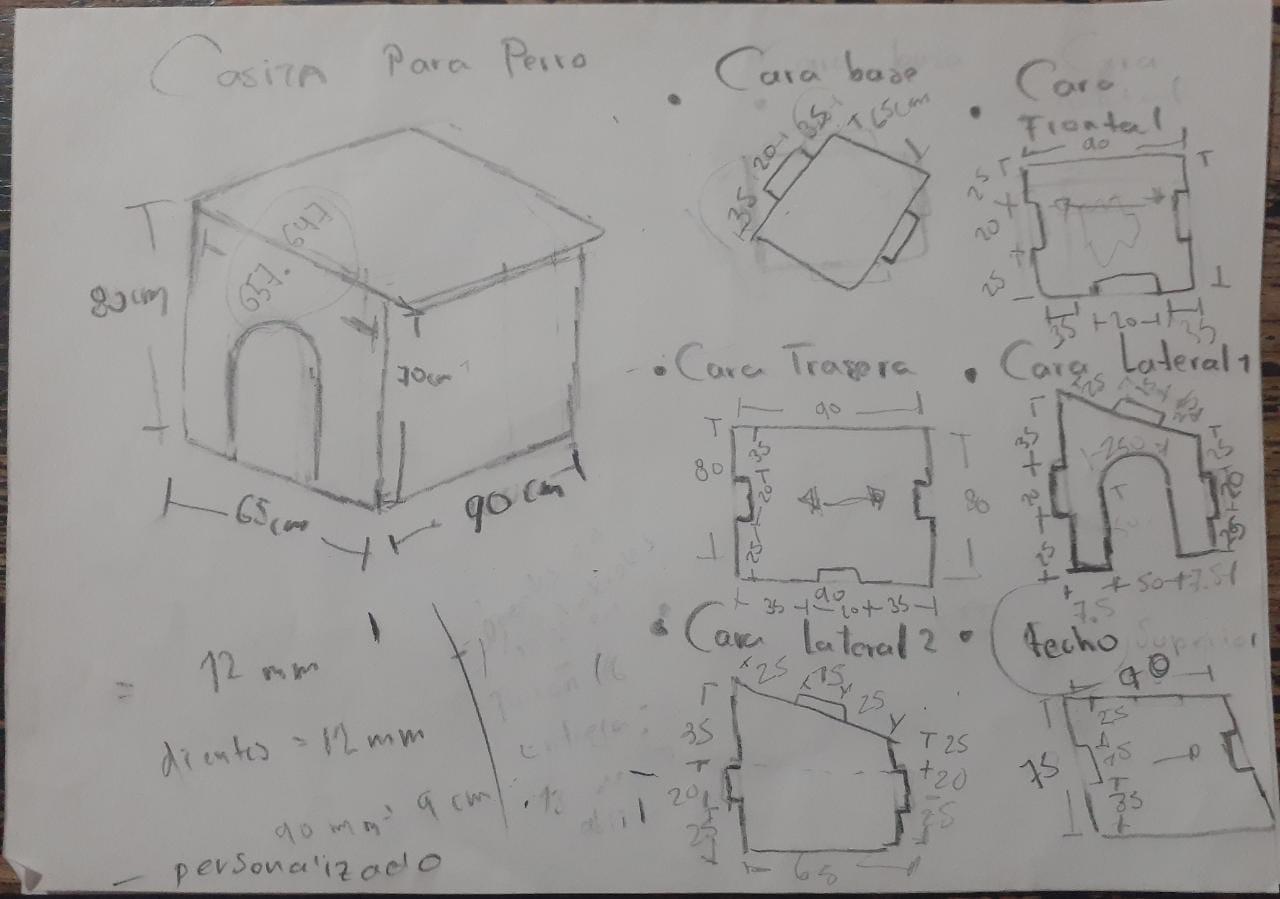 Casita Para Perro
80 cm
647
657.
70cm
65cm
90 cm
= 12 mm
dientes = 12 mm
90 mm = 9 cm
— personalizado
• Cara base
35 20 35 65cm
• Cara
Frontal
90
25
20
25
35 20 35
• Cara Trasera
90
80 35 20 25 80
90
35 20 35
• Cara Lateral 1
25
35 20 25
250
25 20 25
7.5 50 7.5
• Cara lateral 2
25 15 25
35
20
25
25
20
25
65
• techo
90
75
25
15
35